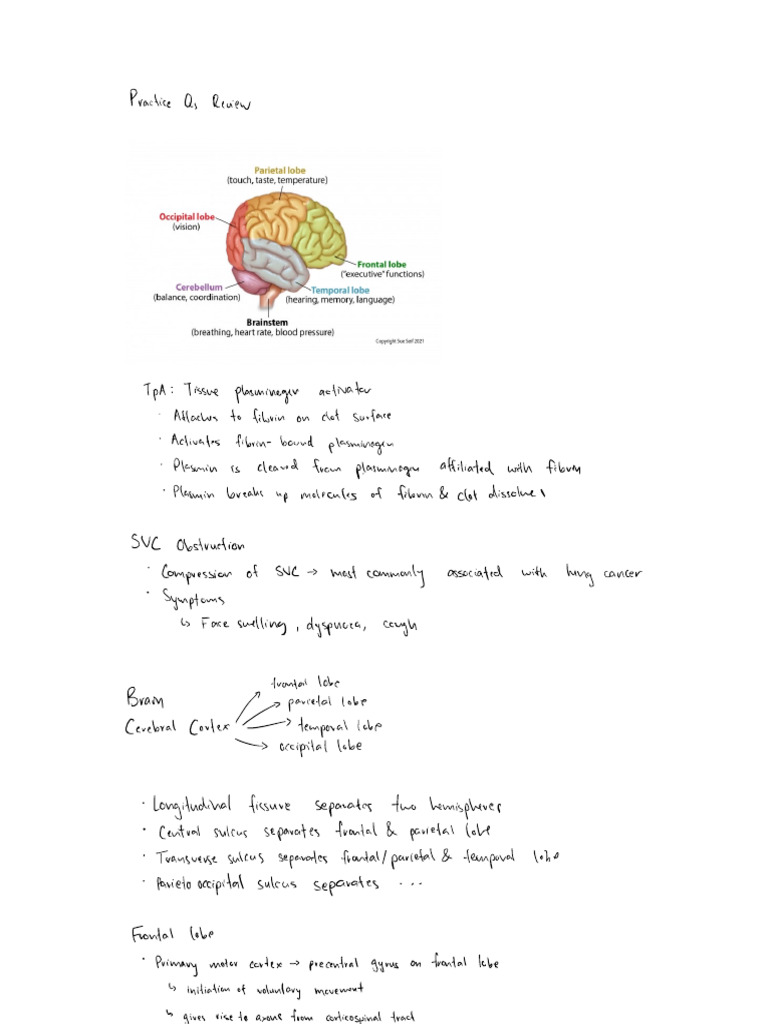 Practice Qs Review
Parietal lobe
(touch, taste, temperature)
Occipital lobe
(vision)
Frontal lobe
("executive" functions)
Cerebellum
(balance, coordination)
Temporal lobe
(hearing, memory, language)
Brainstem
(breathing, heart rate, blood pressure)
Copyright Sue Seif 2021
TpA: Tissue plasminogen activator
· Attaches to fibrin on clot surface
· Activates fibrin-bound plasminogen
· Plasmin is cleaved from plasminogen affiliated with fibrin
· Plasmin breaks up molecules of fibrin & clot dissolves
SVC Obstruction
· Compression of SVC → most commonly associated with lung cancer
· Symptoms
↳ Face swelling, dyspnoea, cough
Brain
Cerebral Cortex
→ frontal lobe
→ parietal lobe
→ temporal lobe
→ occipital lobe
· Longitudinal fissure separates two hemispheres
· Central sulcus separates frontal & parietal lobe
· Transverse sulcus separates frontal/parietal & temporal lobe
· Parieto occipital sulcus separates ...
Frontal lobe
· Primary motor cortex → precentral gyrus on frontal lobe
↳ initiation of voluntary movement
↳ gives rise to axons from corticospinal tract